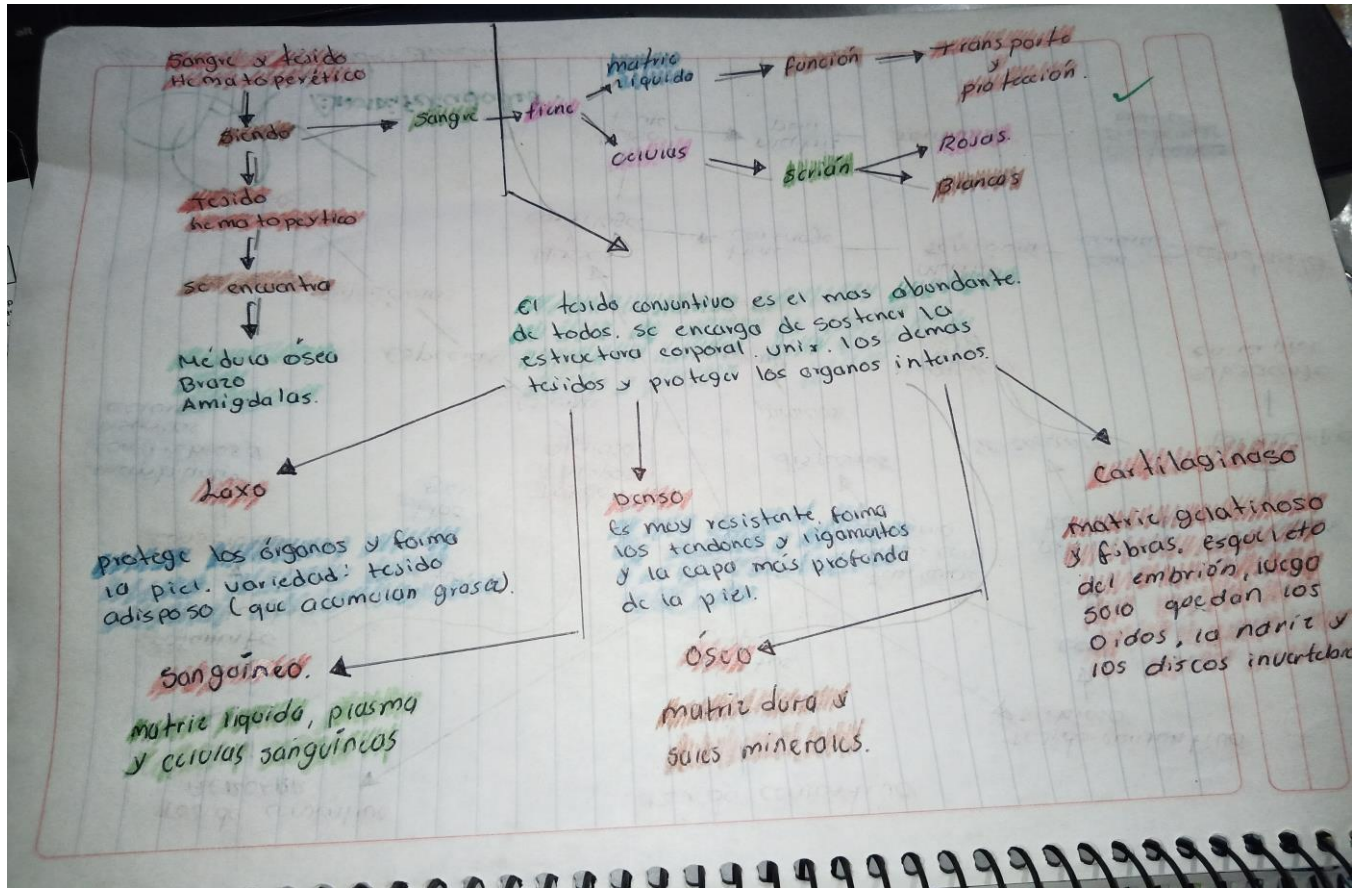 Sangre y tejido
Hematoperético
siendo
sangre
tiene
matriz
líquido
función
transporte
y
protección.
células
serián
Rojas.
Blancos
tejido
hematopeytico
se encuentra
Médula ósea
Brazo
Amigdalas.
El tejido conjuntivo es el mas abundante.
de todos. se encarga de sostener la
estructura corporal. unir. los demas
tejidos y proteger los organos internos.
Laxo
protege los órganos y forma
la piel. variedad: tejido
adisposo (que acumulan grasa).
Denso
Es muy resistente, forma
los tendones y ligamentos
y la capa más profunda
de la piel.
Cartilaginoso
matriz gelatinoso
y fibras. esqueleto
del embrión, luego
solo quedan los
oidos, la nariz y
los discos invertebra
Sanguíneo.
matriz liquida, plasma
y células sanguíneas
Óseo
matriz dura y
sales minerales.